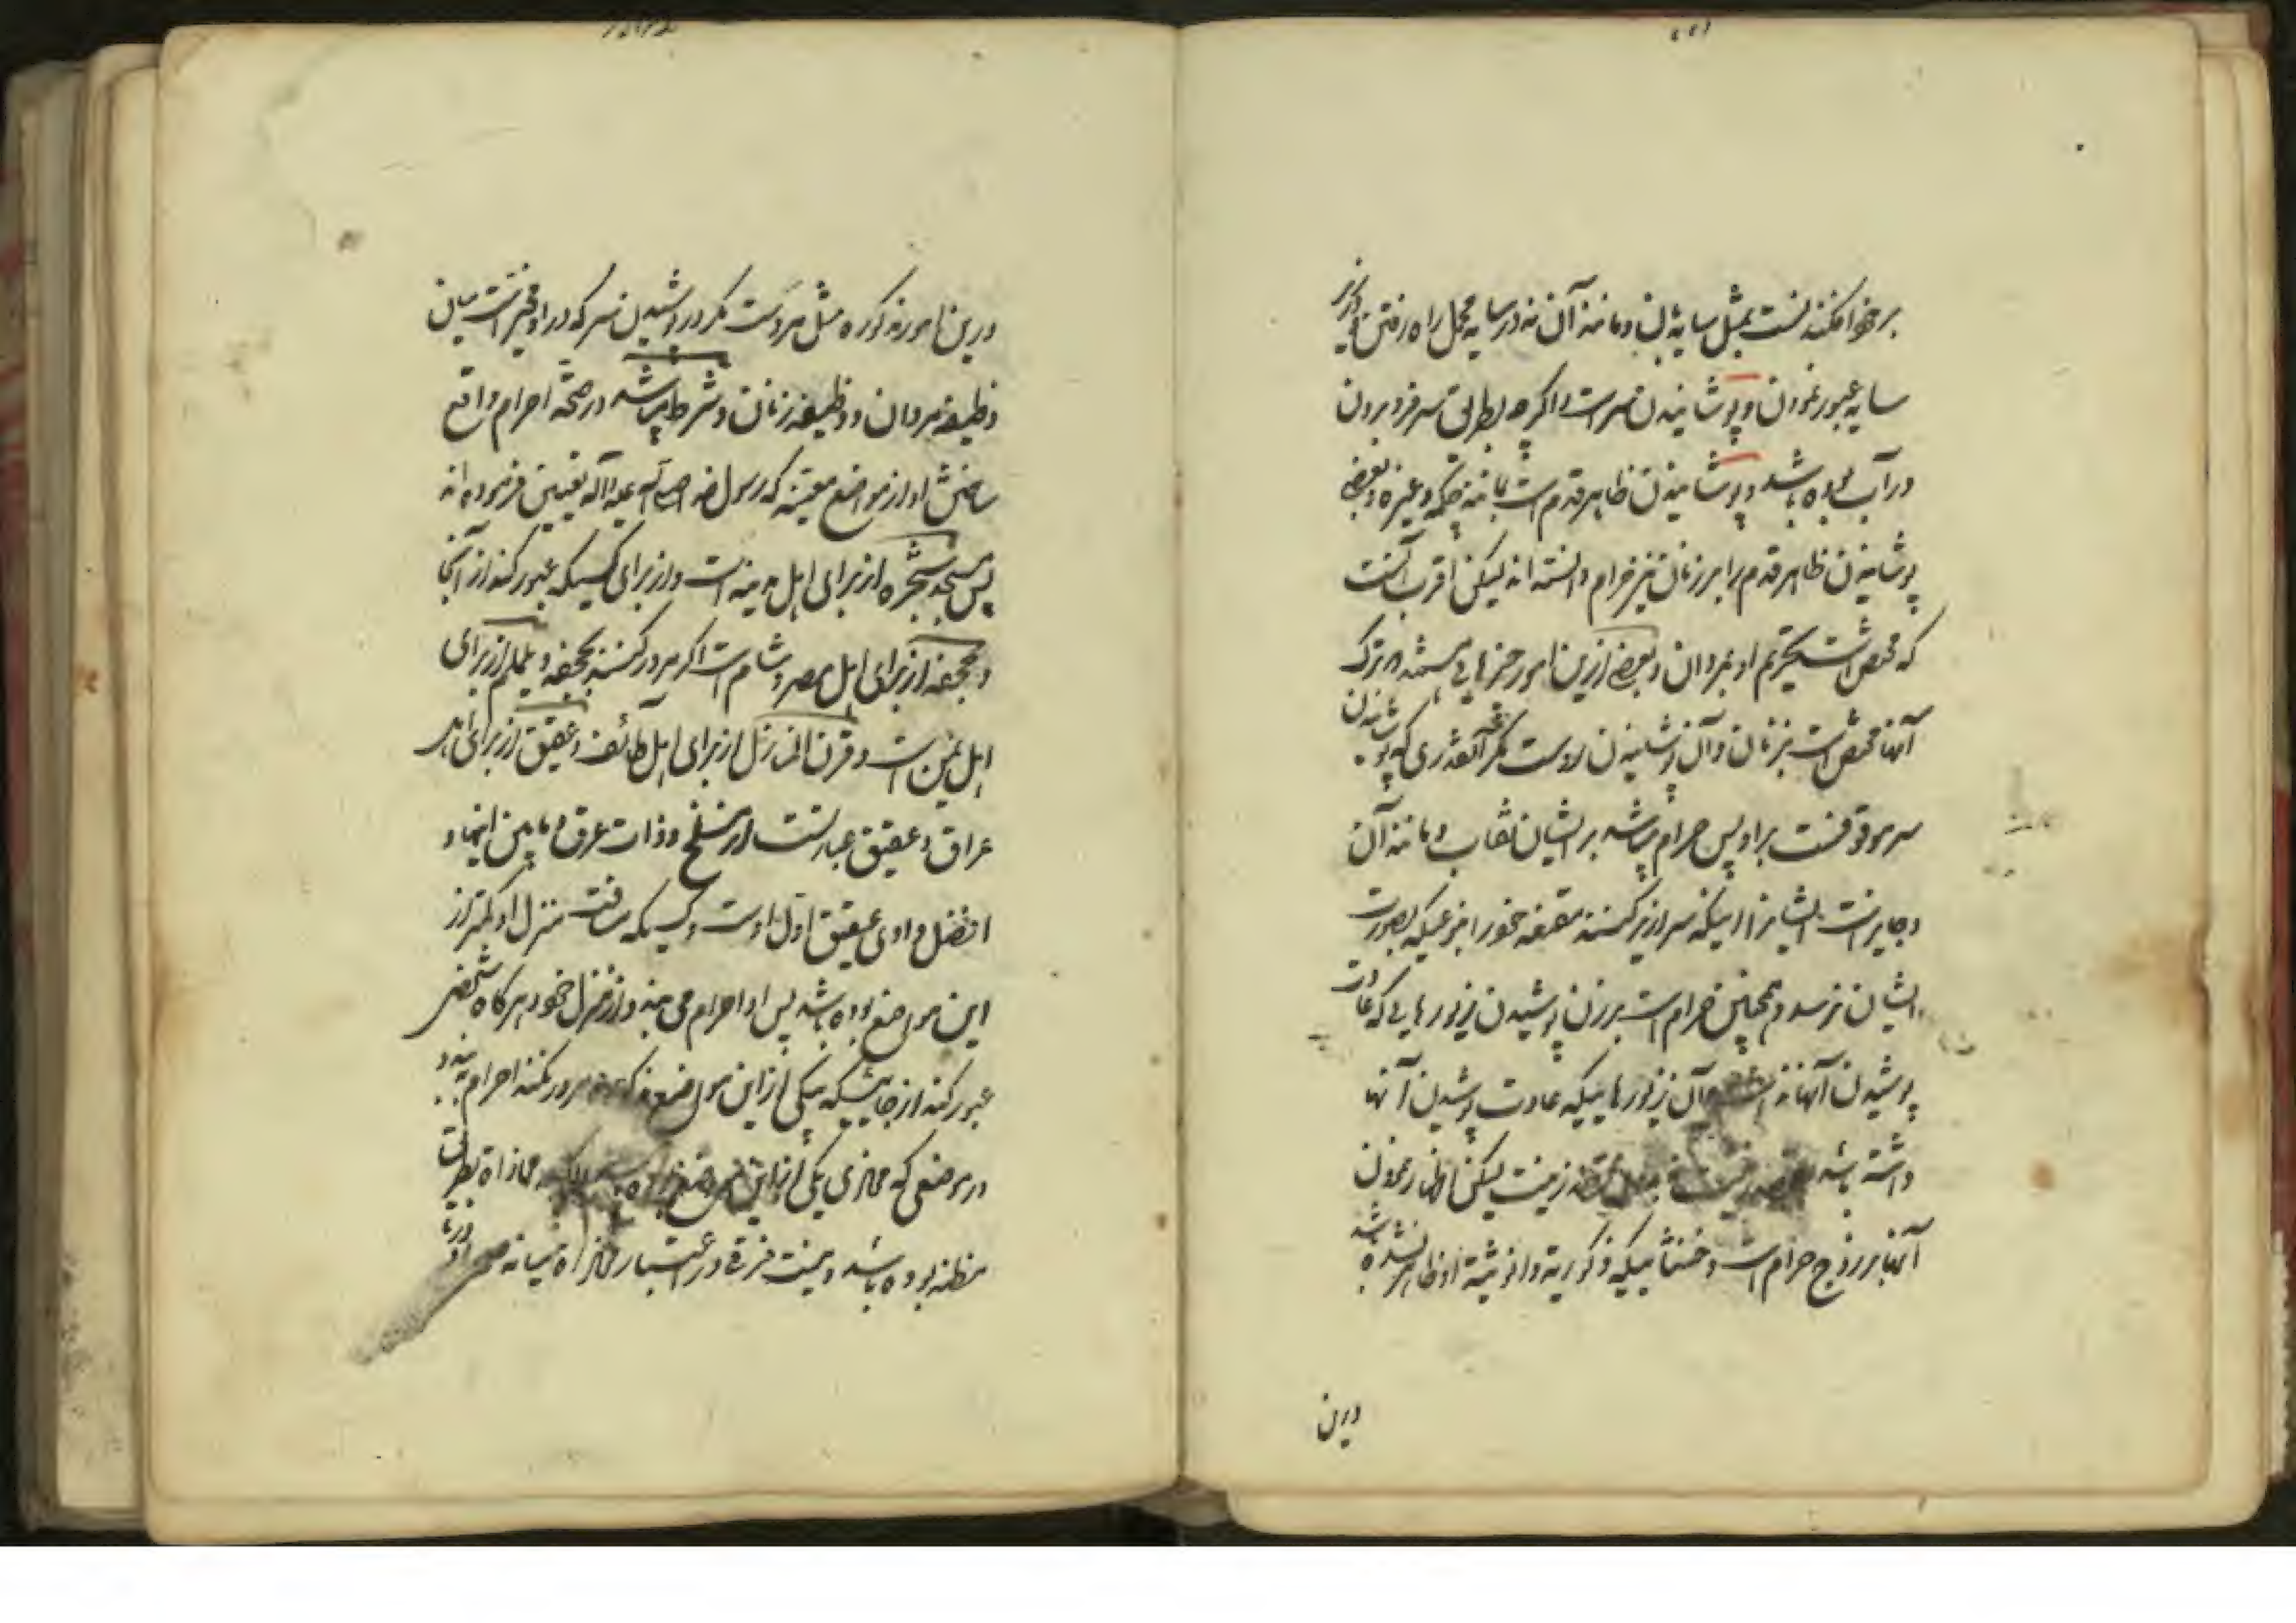 بر خود افکندنست بمثل سایه بان و مانند آن نه در سایه محمل راه رفتن و از زیر
سایه عبور نمودن و پوشانیدن سرست اگر چه بطریق سر فرو بردن
در آب بوده باشد و پوشانیدن ظاهر قدم است بمانند چکمه و غیره و بعضی
پوشانیدن ظاهر قدم را بر زنان نیز حرام دانسته اند لیکن اقرب آنست
که مختص است تحریم او بمردان و بعضی ازین امور چیزهایی هستند که ترک
آنها مختص است بزنان و آن پوشانیدن روست مگر آنقدری که پوشانیدن
سر موقوفست بر او پس حرام میباشد بر ایشان نقاب و مانند آن
و جایز است ایشانرا اینکه سرازیر کنند مقنعه خود را بنوعیکه بصورت
ایشان نرسد و همچنین حرام است بر زن پوشیدن زیورهایی که عادت
پوشیدن آنها نداشته و آن زیورهاییکه عادت پوشیدن آنها
داشته باشد زینت لیکن اظهار نمودن
آنها بر زوج حرام است و خنثاییکه ذکوریة و انوثیة او ظاهر نشده باشد
درین
درین امور مذکوره مثل مردست مگر در پوشیدن سر که در او مخیر است میان
وظیفه مردان و وظیفه زنان و شرط میباشد در صحّة احرام واقع
ساختنش او از مواضع معیّنه که رسول خدا صلی الله علیه و آله تعیین فرموده اند
پس مسجد شجره از برای اهل مدینه است و از برای کسیکه عبور کند از آنجا
و جحفه از برای اهل مصر و شام است اگر مرور کنند بجحفه و یلملم از برای
اهل یمن است و قرن المنازل از برای اهل طائف و عقیق از برای اهل
عراق و عقیق عبارتست از مسلخ و ذات عرق و مابین اینها و
افضل وادی عقیق اول اوست و کسیکه مسافت منزل او کمتر از
این مواضع بوده باشد پس او احرام می بندد از منزل خود هرگاه شخصی
عبور کند از جاییکه بیکی از این مواضع مذکوره مرور نکند احرام ببندد
در موضعی که محاذی یکی از این مواضع بوده باشد محاذاة بطریق
مظنه بوده باشد و نیست فرقی در اعتبار محاذاة میانه صحرا و دریا